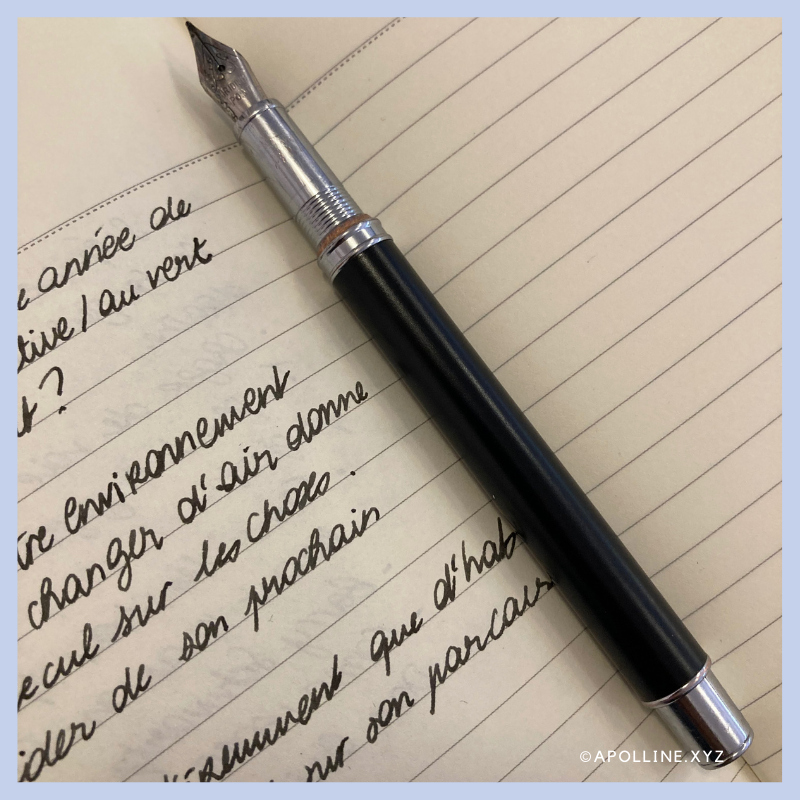 année de
tive / au vert
t ?
tre environnement
changer d'air donne
ecul sur les choses.
ider de son prochain
que d'hab
sur son parcour
©APOLLINE.XYZ